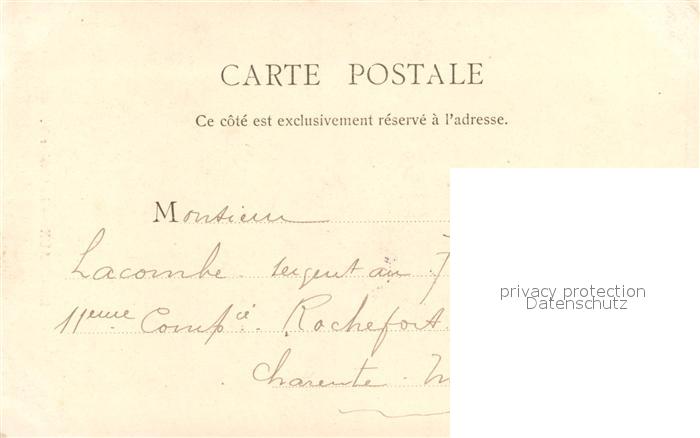 CARTE POSTALE
Ce côté est exclusivement réservé à l'adresse.
Monsieur
Lacombe sergent au 7
privacy protection
Datenschutz
11eme Compie Rochefort
Charente - M